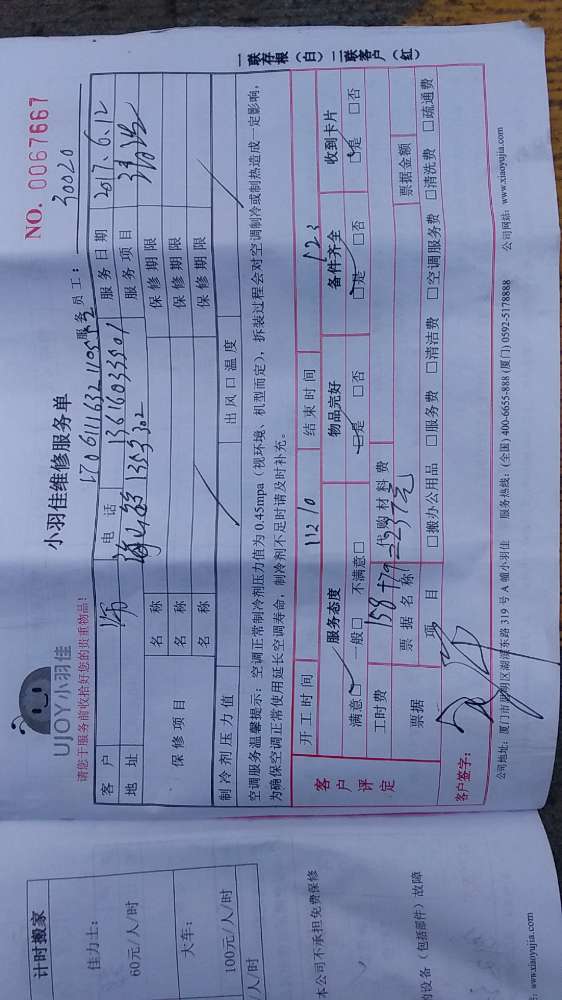 一联存根（白）二联客户（红）
NO. 0067667
小羽佳维修服务单
UJOY小羽佳
请您于服务前收拾好您的贵重物品!
服务员工: 30020
客户 电话 13616033301 服务日期 2017.6.12
地址 服务项目
保修项目
名称 保修期限
名称 保修期限
名称 保修期限
制冷剂压力值 出风口温度
空调服务温馨提示: 空调正常制冷剂压力值为0.45mpa（视环境、机型而定），拆装过程会对空调制冷或制热造成一定影响，
为确保空调正常使用延长空调寿命，制冷剂不足时请及时补充。
客户评定
开工时间 结束时间
服务态度 物品完好 备件齐全 收到卡片
满意□ 一般□ 不满意□ □是 □否 □是 □否 □是 □否
工时费 158+79=237元 代购材料费
票据 票据名称 票据金额
项目 □搬办公用品 □服务费 □清洁费 □空调服务费 □清洗费 □疏通费
客户签字:
公司地址: 厦门市思明区湖滨东路319号A幢小羽佳 服务热线: (全国) 400-6655-888 (厦门) 0592-5178888 公司网站: www.xiaoyujia.com
计时搬家
佳力士:
60元/人/时
大车:
100元/人/时
元/人/时
本公司不承担免费保修
的设备（包括部件）故障
www.xiaoyujia.com